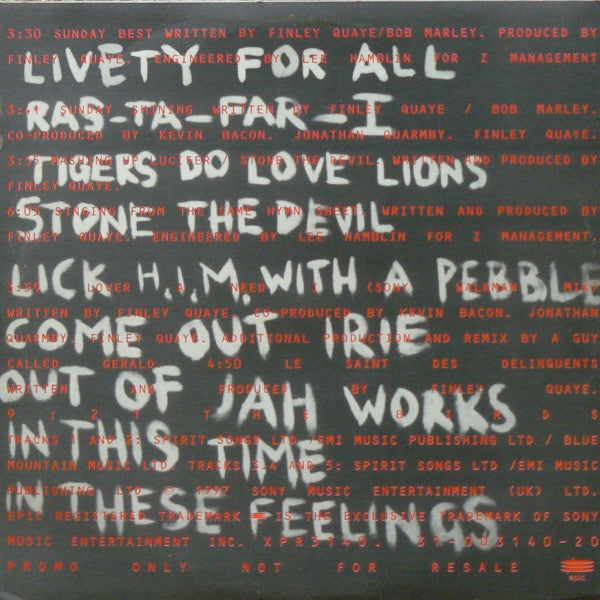 3:30 SUNDAY BEST WRITTEN BY FINLEY QUAYE/BOB MARLEY. PRODUCED BY
FINLEY QUAYE. ENGINEERED BY LEE HAMBLIN FOR Z MANAGEMENT
LIVETY FOR ALL
SUNDAY SHINING WRITTEN BY FINLEY QUAYE / BOB MARLEY.
RAS-TA-FAR-I
CO-PRODUCED BY KEVIN BACON. JONATHAN QUARMBY. FINLEY QUAYE.
3:55 MASHING UP LUCIFER / STONE THE DEVIL. WRITTEN AND PRODUCED BY
TIGERS DO LOVE LIONS
FINLEY QUAYE.
6:05 SINGING FROM THE SAME HYMN SHEET. WRITTEN AND PRODUCED BY
STONE THE DEVIL
FINLEY QUAYE. ENGINEERED BY LEE HAMBLIN FOR Z MANAGEMENT.
LICK H.I.M. WITH A PEBBLE
LOVER A NEED I (SONY WALKMAN MIX)
WRITTEN BY FINLEY QUAYE. CO-PRODUCED BY KEVIN BACON. JONATHAN
COME OUT IRIE
QUARMBY. FINLEY QUAYE. ADDITIONAL PRODUCTION AND REMIX BY A GUY
CALLED GERALD. 4:50 LE SAINT DES DELINQUENTS
WRITTEN AND PRODUCED BY FINLEY QUAYE.
OF JAH WORKS
9:27 THE BIRDS
TRACKS 1 AND 2: SPIRIT SONGS LTD /EMI MUSIC PUBLISHING LTD / BLUE
IN THIS TIME
MOUNTAIN MUSIC LTD. TRACKS 3.4 AND 5: SPIRIT SONGS LTD /EMI MUSIC
PUBLISHING LTD © 1997 SONY MUSIC ENTERTAINMENT (UK) LTD.
IN THESE FEELINGS
EPIC REGISTERED TRADEMARK IS THE EXCLUSIVE TRADEMARK OF SONY
MUSIC ENTERTAINMENT INC. XPR3140. 31-003140-20
PROMO ONLY NOT FOR RESALE
epic